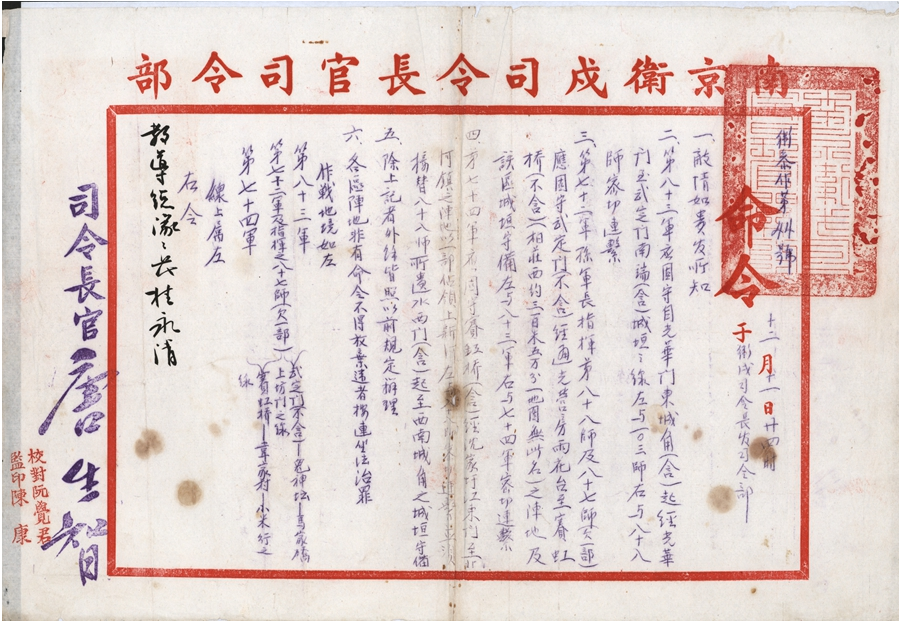 南京衛戍司令長官司令部
衛參作字第卅號
命令
十二月十一日廿四時
于衛戍司令長官司令部
一、敵情如貴官所知
二、第八十三軍應固守自光華門東城角(含)起經光華
門至武定門南端(含)城垣之線左與一〇三師右與八十八
師密切連繫
三、第七十二軍孫軍長指揮第八十八師及八十七師(欠一部)
應固守武定門(不含)經通光營房雨花台至賽虹
橋(不含)(相距西約三百米五万分一地圖無此名)之陣地及
該區城垣守備左與八十三軍右與七十四軍密切連繫
四、第七十四軍應固守賽虹橋(含)經沈家圩江東門至北
河鎮之陣地以一部占領上新河左
接替八十八師所遺水西門(含)起至西南城角之城垣守備
五、除上記者外餘皆照以前規定辦理
六、各區陣地非有命令不得放棄違者按連坐法治罪
作戰地境如左
第八十三軍
第七十二軍及指揮之八十七師(欠一部)
武定門(不含)—
上坊門之線
第七十四軍
賽虹橋—
線上屬左
右令
教導總隊總隊長桂永清
司令長官唐生智
校對阮覺君
監印陳康